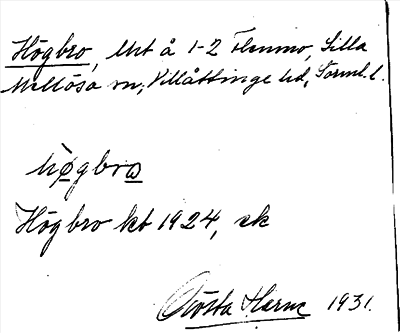 Högbro, Utt å 1-2 Flenmo, Lilla
Mellösa sn, Villåttinge hd, Sörml. l.
hø̀gbrω
Högbro kb 1924, ek
Gösta Harne 1931.